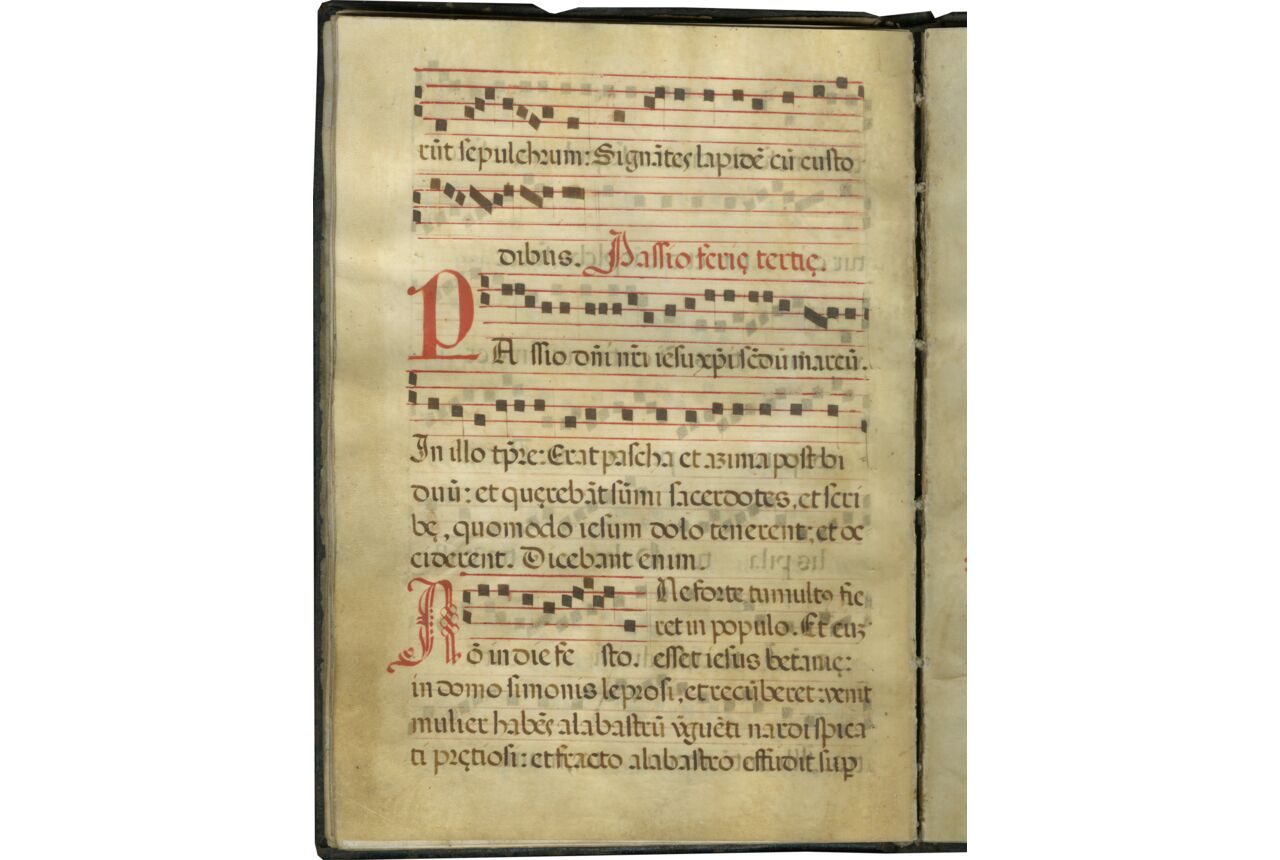 rūt sepulchrum: Signātes lapidē cū custo
dibus. Passio ferię tertię.
PAssio dn̄i nr̄i iesu xp̄i scd̄ū marcū.
In illo tp̄re: Erat pascha et azima post bi
duū: et quęrebāt sūmi sacerdotes, et scri
bę, quomodo iesum dolo tenerent; et oc
ciderent. Dicebant enim.
Nō in die festo. Ne forte tumultus fie
ret in populo. Et cuȝ
esset iesus betanię:
in domo simonis leprosi, et recūberet: venit
mulier habēs alabastrū vguēti nardi spica
ti prętiosi: et fracto alabastro effudit suꝑ